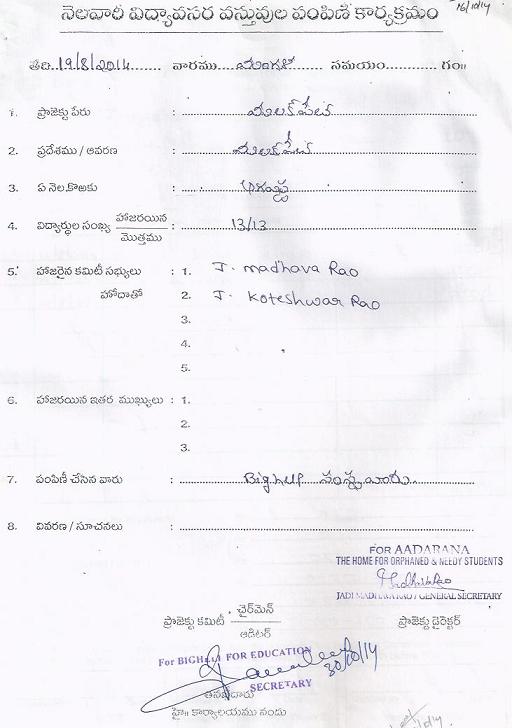 16/10/14
నెలవారీ విద్యావసర వస్తువుల పంపిణీ కార్యక్రమం
తేది. 19/8/2014 వారము మంగళ సమయం గం॥
1. ప్రాజెక్టు పేరు : మలక్‌పేట
2. ప్రదేశము / ఆవరణ : మలక్‌పేట
3. ఏ నెల కొఱకు : ఆగష్టు
4. విద్యార్థుల సంఖ్య హాజరయిన / మొత్తము : 13/13
5. హాజరైన కమిటీ సభ్యులు : 1. J. madhava Rao
హోదాతో 2. J. Koteshwar Rao
3.
4.
5.
6. హాజరయిన ఇతర ముఖ్యులు : 1.
2.
3.
7. పంపిణీ చేసిన వారు : Bighelp సంస్థ వారు
8. వివరణ / సూచనలు :
FOR AADARANA
THE HOME FOR ORPHANED & NEEDY STUDENTS
JADI MADHAVA RAO / GENERAL SECRETARY
ప్రాజెక్టు కమిటీ ఛైర్‌మెన్ / ఆడిటర్
ప్రాజెక్టు డైరెక్టర్
For BIGHELP FOR EDUCATION
30/10/14
SECRETARY
తనిఖీదారు
హై॥ కార్యాలయము నందు